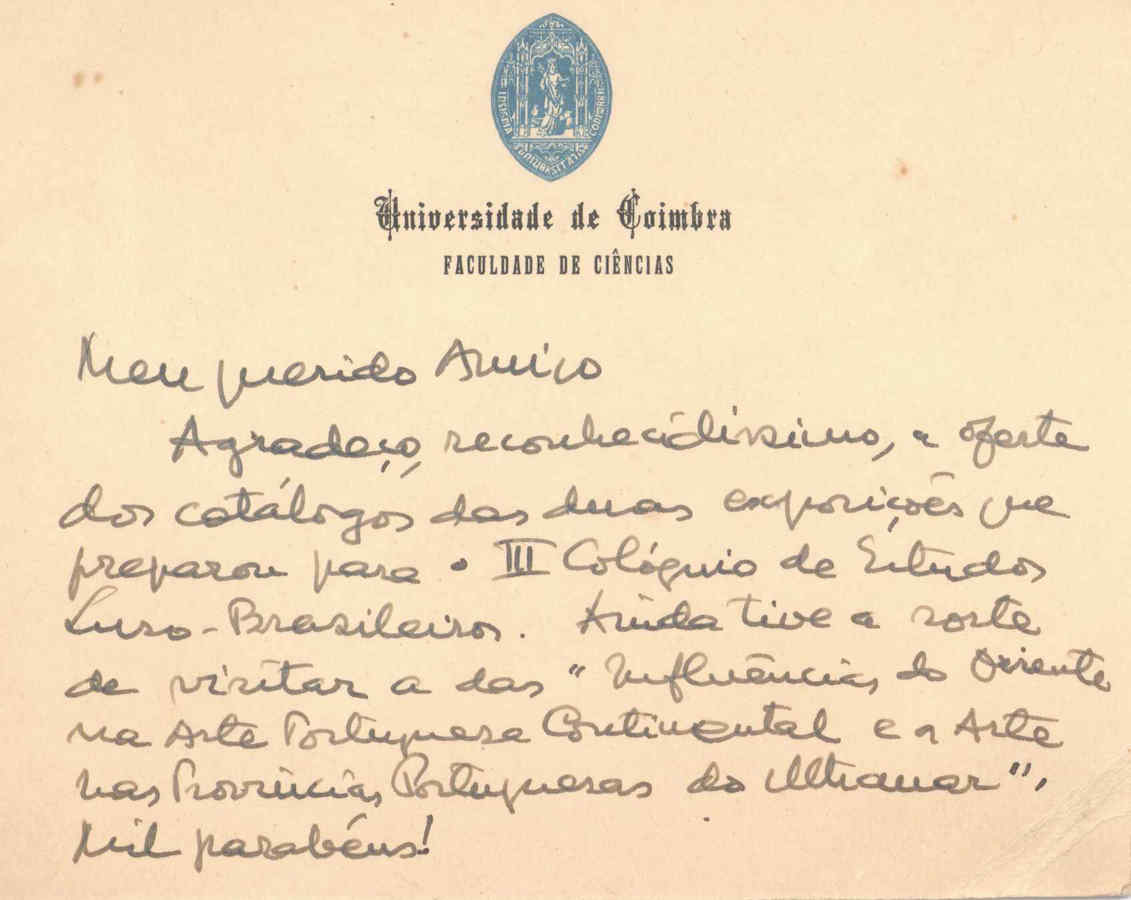 INSIGNIA UNIVERSITATIS CONIMBRIGENSIS
Universidade de Coimbra
FACULDADE DE CIÊNCIAS
Meu querido Amigo
Agradeço, reconhecidissimo, a oferta
dos catálogos das duas exposições que
preparou para o III Colóquio de Estudos
Luso-Brasileiros. Ainda tive a sorte
de visitar a das "Influências do Oriente
na Arte Portuguesa Continental e a Arte
nas Províncias Portuguesas do Ultramar".
Mil parabéns!